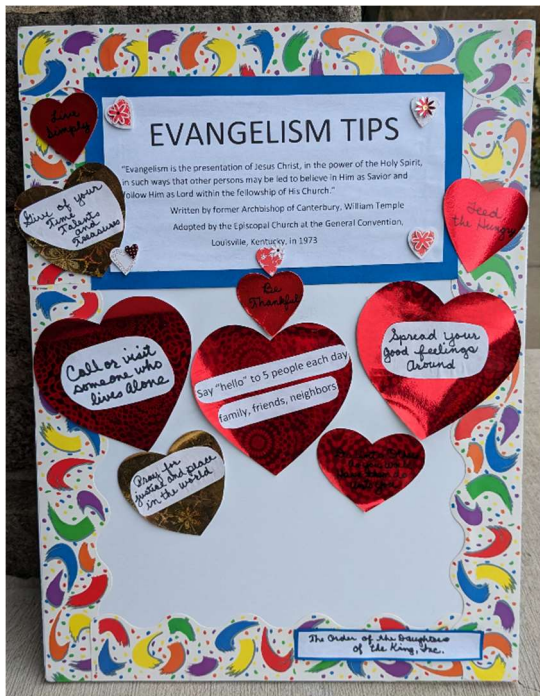 EVANGELISM TIPS
"Evangelism is the presentation of Jesus Christ, in the power of the Holy Spirit,
in such ways that other persons may be led to believe in Him as Savior and
follow Him as Lord within the fellowship of His Church."
Written by former Archbishop of Canterbury, William Temple
Adopted by the Episcopal Church at the General Convention,
Louisville, Kentucky, in 1973
Live
Simply
Give of your
Time
Talents
and
Treasures
Feed
the Hungry
Be
Thankful
Call or visit
someone who
lives alone
Say "hello" to 5 people each day
family, friends, neighbors
Spread your
good feelings
around
Pray for
justice and peace
in the world
as you would
have them do
unto you
The Order of the Daughters
of the King, Inc.